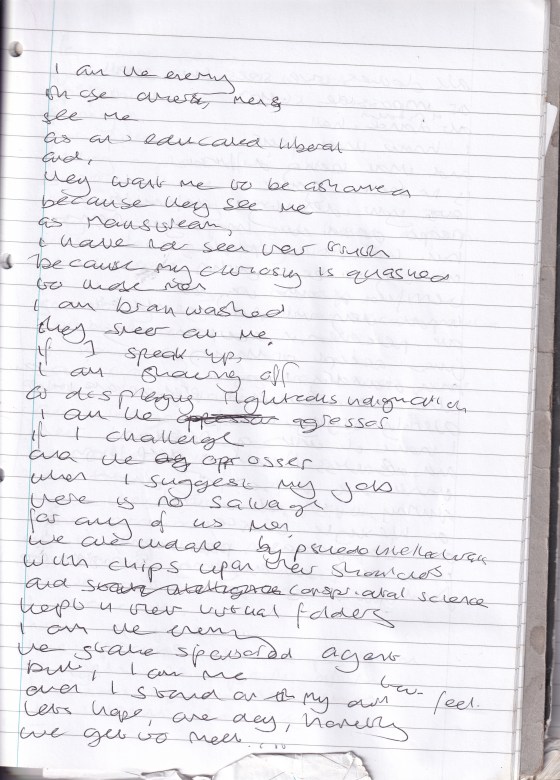 I am the enemy
see me
as an educated liberal
and,
they want me to be ashamed
because they see me
as mainstream,
I have not seen their truth
because my curiosity is quashed
to them
I am brain washed
they sneer at me.
if I speak up,
I am showing off
or displaying righteous indignation
I am the agressor
if I challenge
and the opprosser
when I suggest my job
there is no salvage
for any of us
we are by pseudo intellectuals
with chips upon their shoulders
and conspiratial science
kept in their virtual folders
I am the enemy
the state sponsored agent
but, I am me
and I stand on my own two feet.
lets hope, one day, honestly
we get to meet....